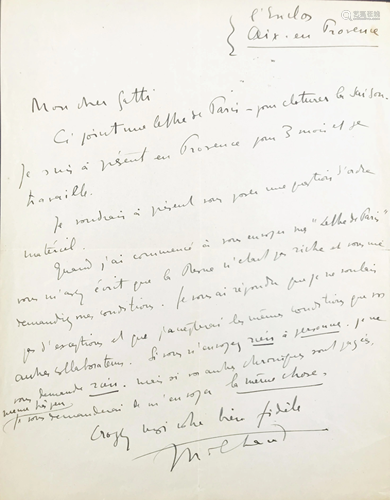 l'Enclos
Aix-en Provence
Mon cher Gatti
Ci joint une lettre de Paris - pour cloturer la saison.
Je suis à présent en Provence pour 3 mois et je
travaille.
Je voudrais à présent vous poser une question d'ordre
matériel.
Quand j'ai commencé à vous envoyer mes "Lettres de Paris"
vous m'avez écrit que la Revue n'était pas riche et vous me
demandiez mes conditions. Je vous ai répondu que je ne voulais
pas d'exceptions et que j'accepterai les mêmes conditions que vos
autres collaborateurs. Si vous n'envoyez rien à personne, je ne
vous demande rien, mais si vos autres chroniques sont payées,
je vous demanderai de m'envoyer la même chose.
Croyez moi votre bien fidèle
Milhaud